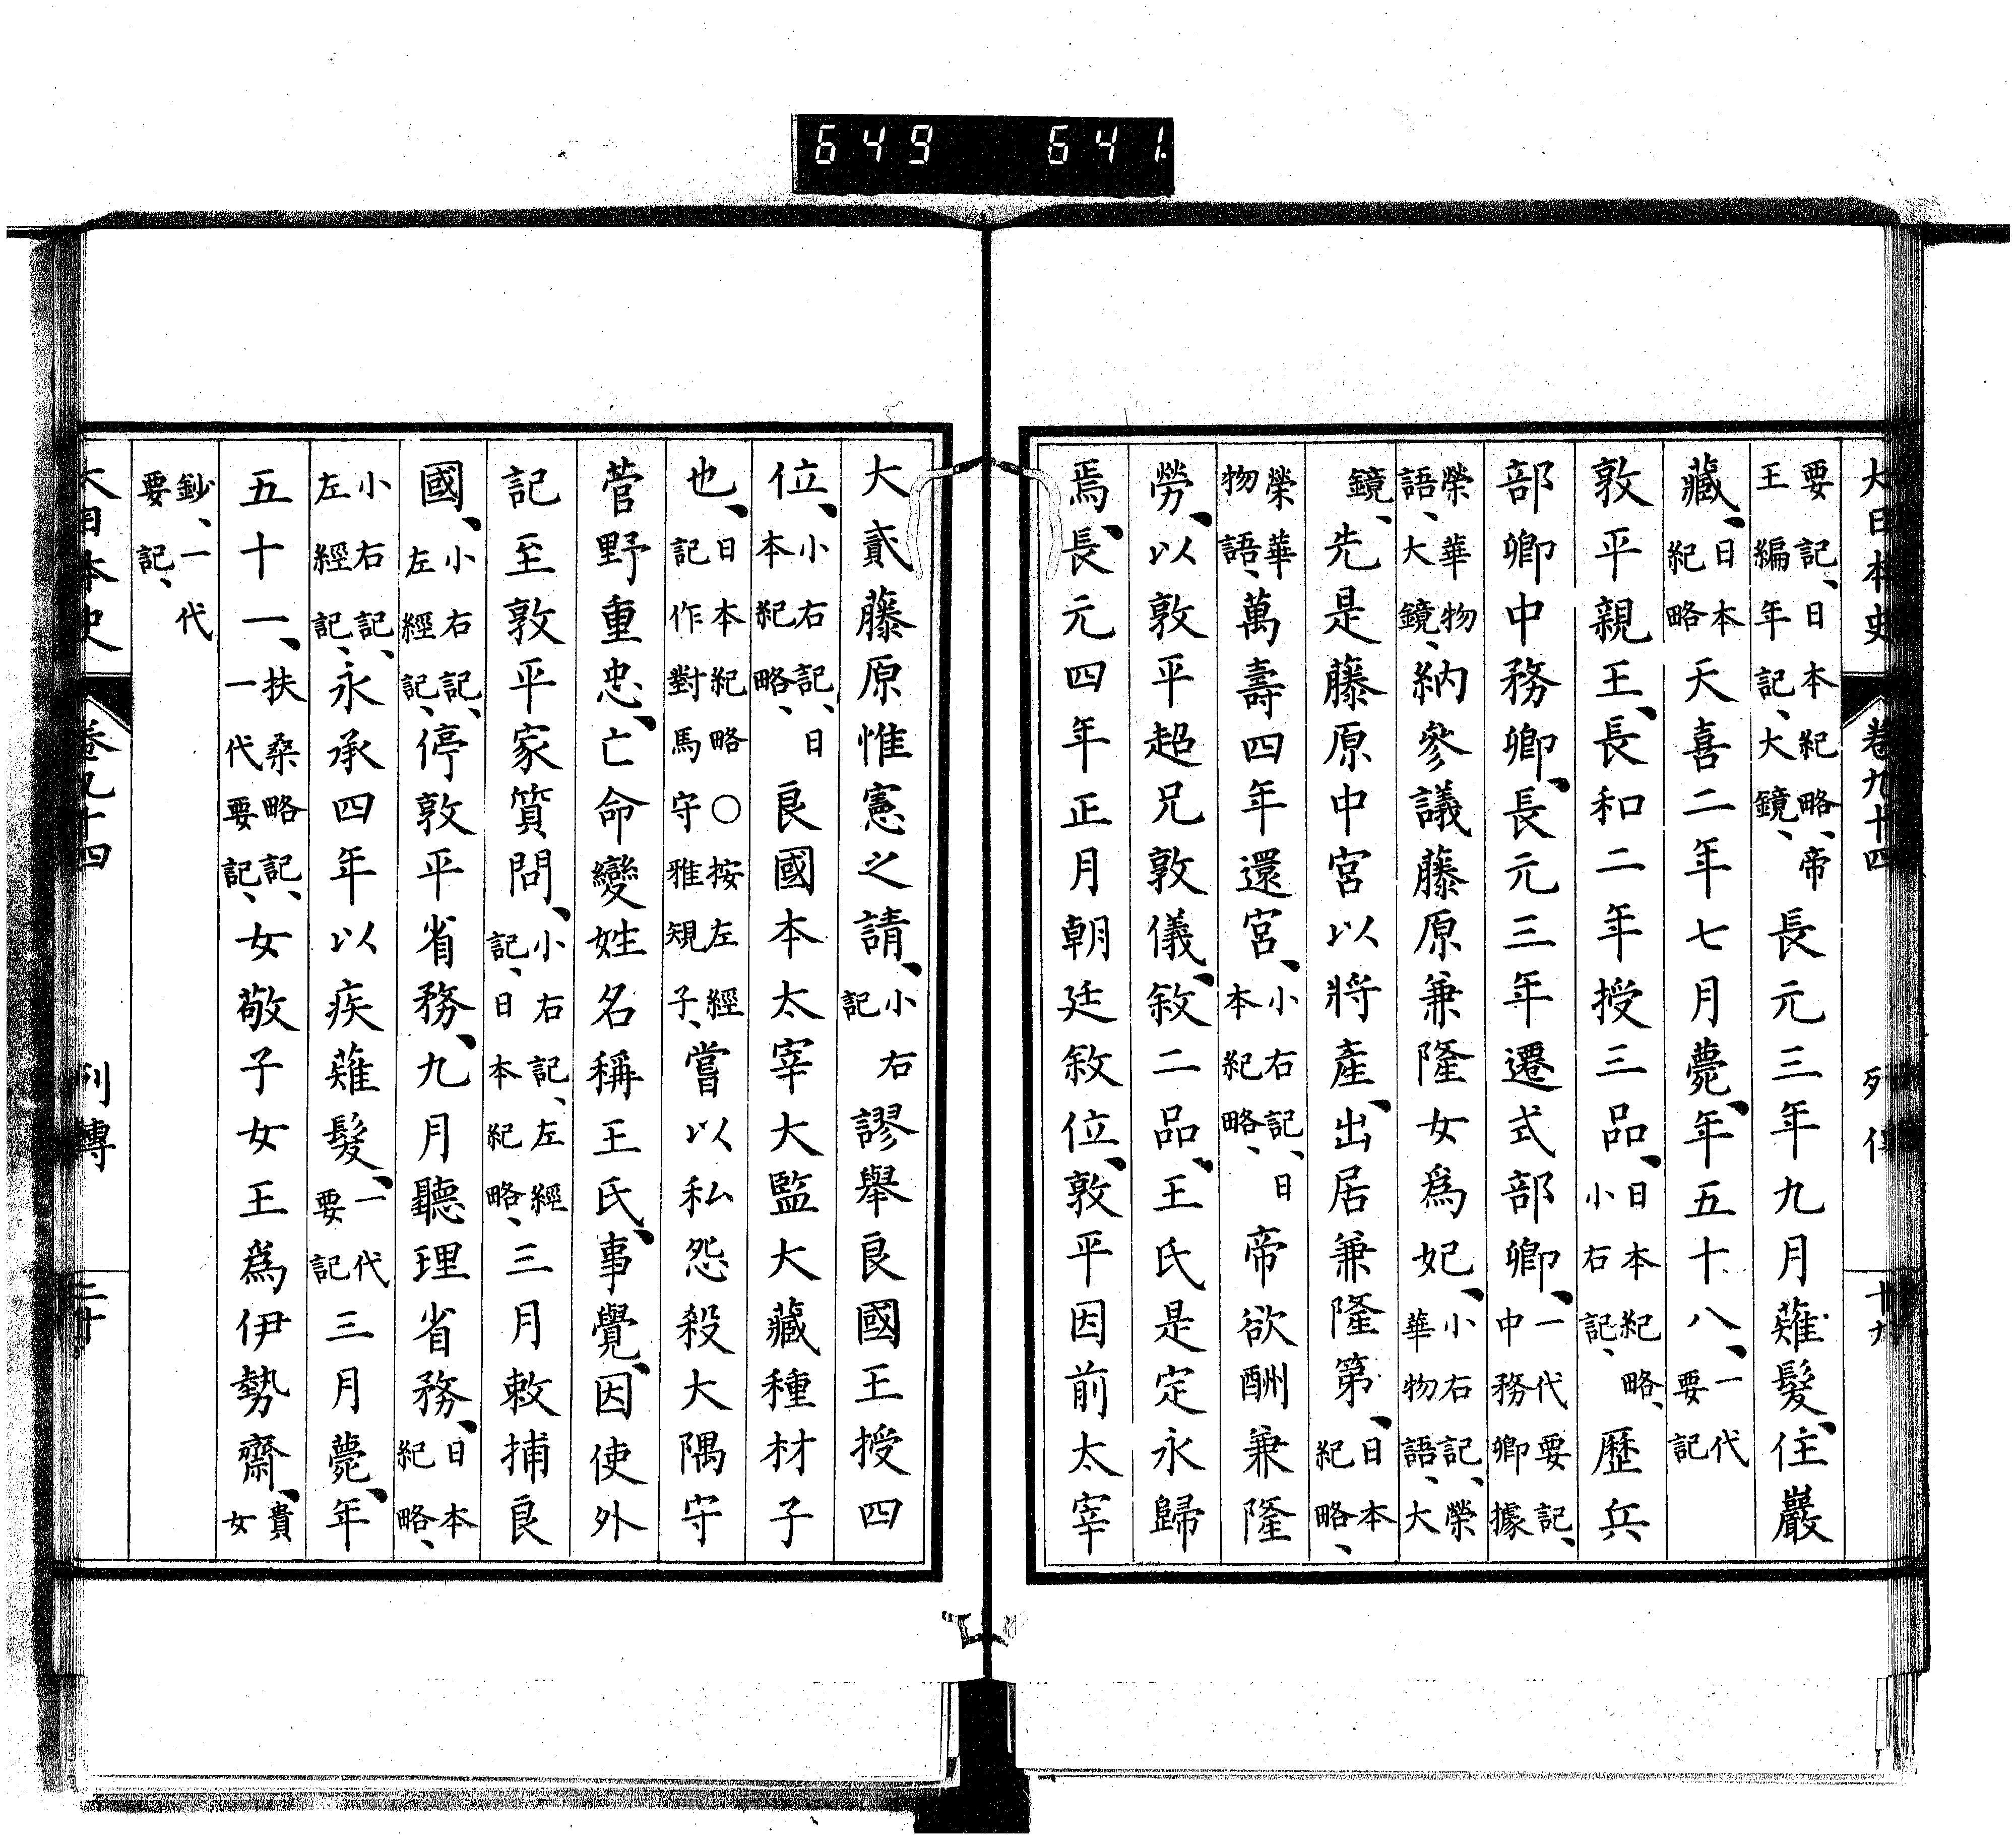 649 641.
大日本史 卷九十四 列傳 十九
要記、日本紀略、帝王編年記、大鏡、長元三年九月薙髮、住巖
藏、日本紀略天喜二年七月薨、年五十八、一代要記
敦平親王、長和二年授三品、日本紀略、小右記、歷兵
部卿中務卿、長元三年遷式部卿、一代要記、中務卿據
榮華物語、大鏡、納參議藤原兼隆女爲妃、小右記、榮華物語、大
鏡、先是藤原中宮以將產、出居兼隆第、日本紀略、
榮華物語、萬壽四年還宮、小右記、日本紀略、帝欲酬兼隆
勞、以敦平超兄敦儀、敘二品、王氏是定永歸
焉、長元四年正月朝廷敘位、敦平因前太宰
大貳藤原惟憲之請、小右記謬舉良國王授四
位、小右記、日本紀略、良國本太宰大監大藏種材子
也、日本紀略○按左經記作對馬守雅規子、嘗以私怨殺大隅守
菅野重忠、亡命變姓名稱王氏、事覺、因使外
記至敦平家質問、小右記、左經記、日本紀略、三月敕捕良
國、小右記、左經記、停敦平省務、九月聽理省務、日本紀略、
小右記、左經記、永承四年以疾薙髮、一代要記三月薨、年
五十一、扶桑略記、一代要記、女敬子女王爲伊勢齋、貴女
鈔、一代要記、
大日本史 卷九十四 列傳 二十